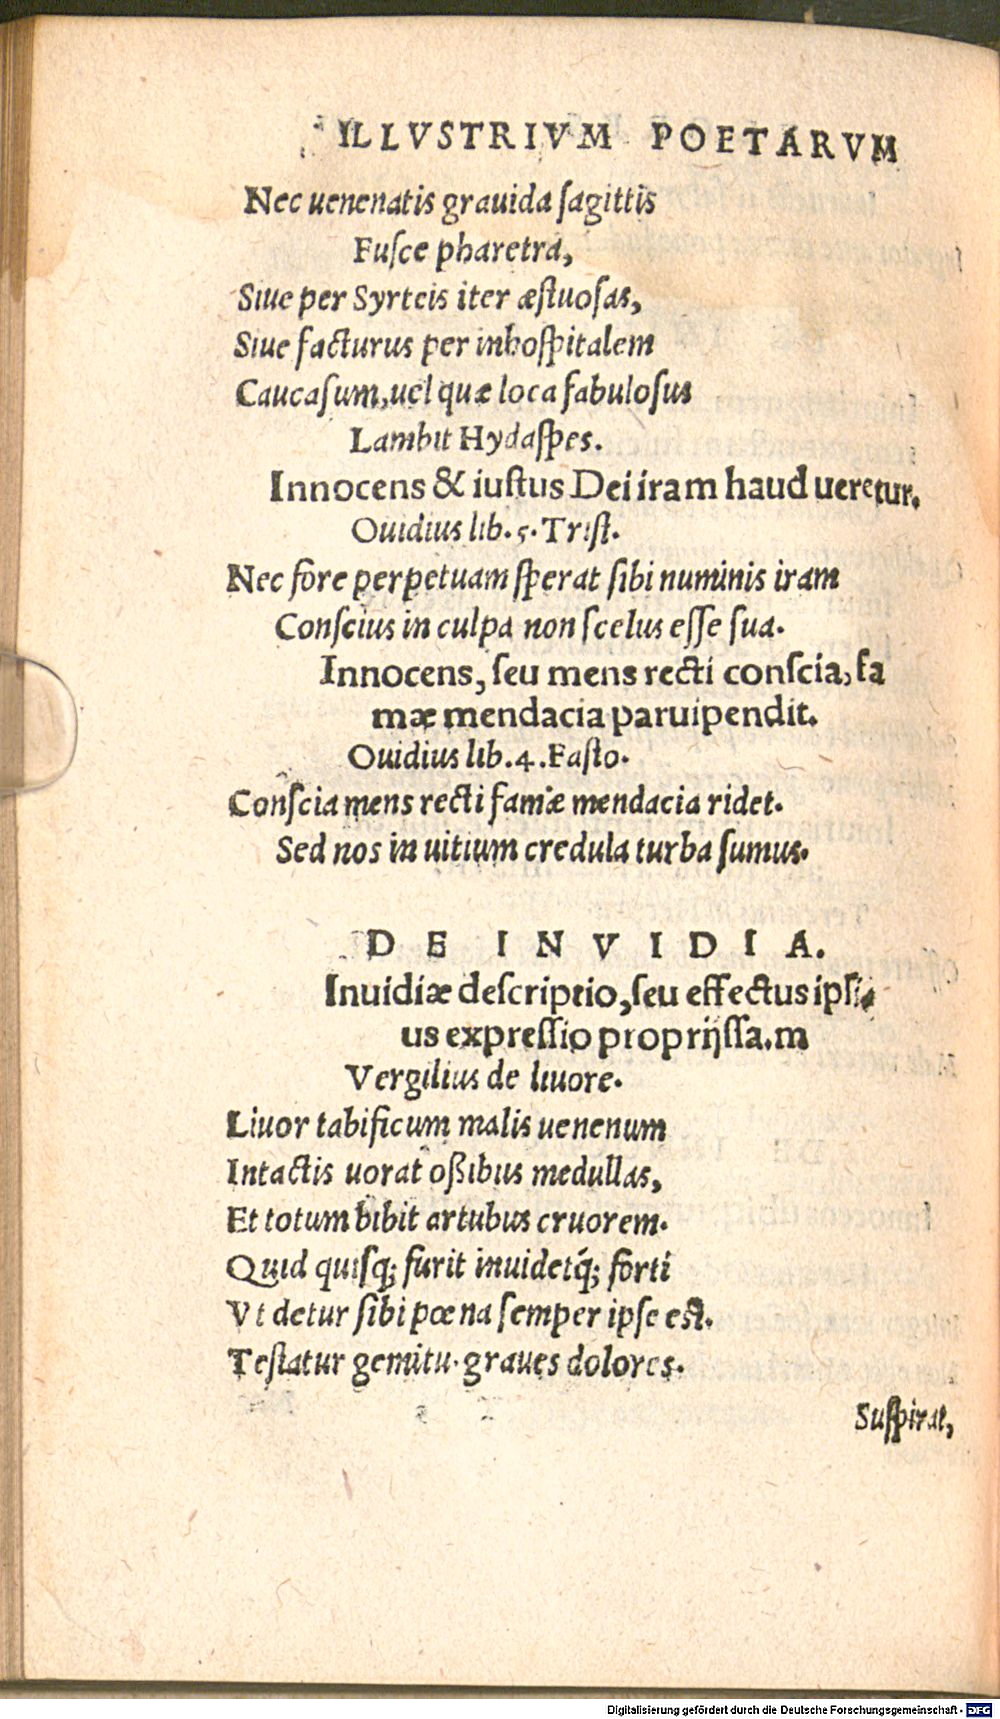 ILLVSTRIVM POETARVM
Nec uenenatis grauida ſagittis
Fuſce pharetra,
Siue per Syrteis iter æſtuoſas,
Siue facturus per inhoſpitalem
Caucaſum, uel quæ loca fabuloſus
Lambit Hydaſpes.
Innocens & iuſtus Dei iram haud ueretur.
Ouidius lib. 5. Triſt.
Nec fore perpetuam ſperat ſibi numinis iram
Conſcius in culpa non ſcelus eſſe ſua.
Innocens, ſeu mens recti conſcia, fa
mæ mendacia paruipendit.
Ouidius lib. 4. Faſto.
Conſcia mens recti famæ mendacia ridet.
Sed nos in uitium credula turba ſumus.
DE INVIDIA.
Inuidiæ deſcriptio, ſeu effectus ipſi
us expreſſio proprijſſa.m
Vergilius de liuore.
Liuor tabificum malis uenenum
Intactis uorat oßibus medullas,
Et totum bibit artubus cruorem.
Quid quiſq; furit inuidetq́; ſorti
Vt detur ſibi pœna ſemper ipſe eſt.
Teſtatur gemitu. graues dolores.
Suſpirat,
Digitalisierung gefördert durch die Deutsche Forschungsgemeinschaft - DFG